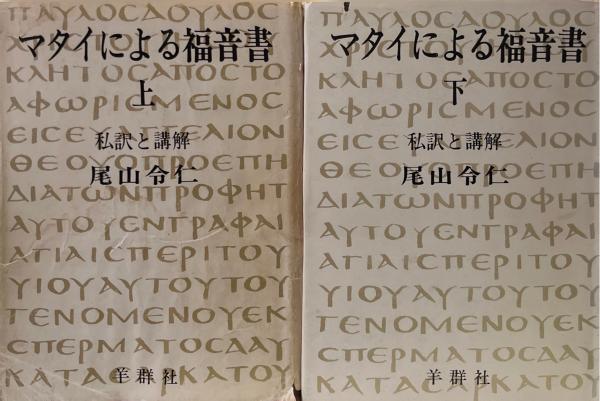 ΠΑΥΛΟCΔΟΥΛΟC
マタイによる福音書
ΚΛΗΤΟCΑΠΟCΤΟ
上
ΑΦΩΡΙCΜΕΝΟC
私訳と講解
ΘΕΟΥΟΠΡΟΕΠΗ
尾山令仁
ΔΙΑΤΩΝΠΡΟΦΗΤ
ΑΥΤΟΥΕΝΓΡΑΦΑΙ
ΑΓΙΑΙCΠΕΡΙΤΟΥ
ΥΙΟΥΑΥΤΟΥΤΟΥ
ΓΕΝΟΜΕΝΟΥΕΚ
CΠΕΡΜΑΤΟCΔΑΥ
ΚΑΤΑCΑΡΚΑΤΟΥ
羊群社
ΠΑΥΛΟCΔΟΥΛΟC
マタイによる福音書
ΚΛΗΤΟCΑΠΟCΤΟ
下
ΑΦΩΡΙCΜΕΝΟC
私訳と講解
ΘΕΟΥΟΠΡΟΕΠΗ
尾山令仁
ΔΙΑΤΩΝΠΡΟΦΗΤ
ΑΥΤΟΥΕΝΓΡΑΦΑΙ
ΑΓΙΑΙCΠΕΡΙΤΟΥ
ΥΙΟΥΑΥΤΟΥΤΟΥ
ΓΕΝΟΜΕΝΟΥΕΚ
CΠΕΡΜΑΤΟCΔΑΥ
ΚΑΤΑCΑΡΚΑΤΟΥ
羊群社